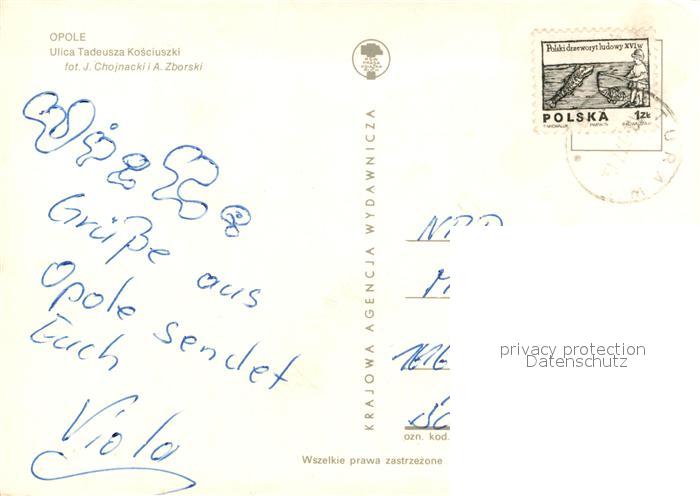 OPOLE
Ulica Tadeusza Kościuszki
fot. J. Chojnacki i A. Zborski
Viele
Grüße aus
Opole sendet
Euch
Viola
KRAJOWA AGENCJA WYDAWNICZA
Polski drzeworyt ludowy XVI w
POLSKA 1 ZŁ
TURAWA
NRD
1616
ozn. kod.
Wszelkie prawa zastrzeżone
privacy protection
Datenschutz